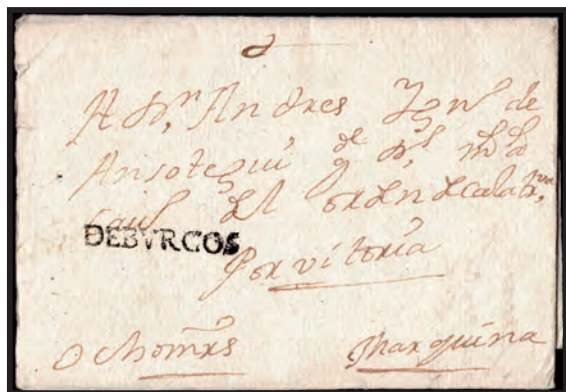 A Dn Andres Ygnº de
Ansotegui gde Ds ms as
cavº del orden de calatrva
DEBVRGOS
Por vitoria
Marquina